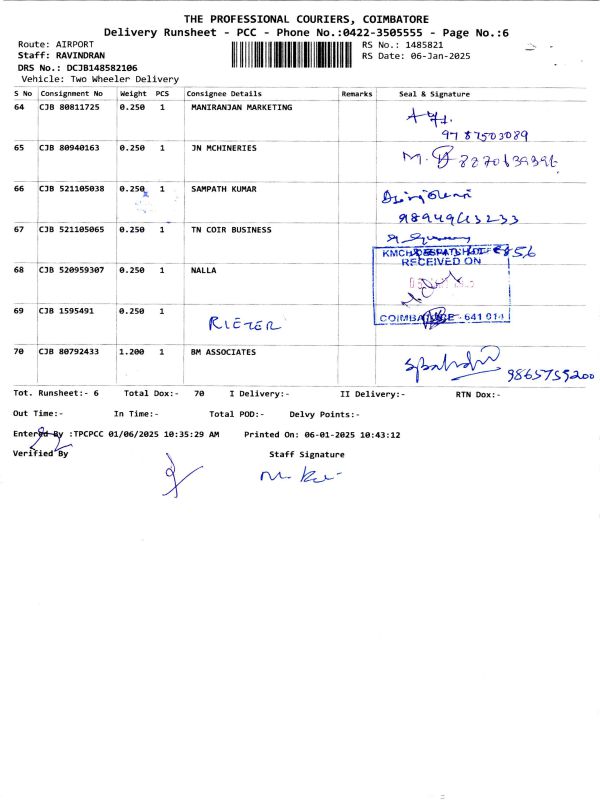 THE PROFESSIONAL COURIERS, COIMBATORE
Delivery Runsheet - PCC - Phone No.:0422-3505555 - Page No.:6
Route: AIRPORT
RS No.: 1485821
Staff: RAVINDRAN
RS Date: 06-Jan-2025
DRS No.: DCJB148582106
Vehicle: Two Wheeler Delivery
S No Consignment No Weight PCS Consignee Details Remarks Seal & Signature
64 CJB 80811725 0.250 1 MANIRANJAN MARKETING
9787503089
65 CJB 80940163 0.250 1 JN MCHINERIES
66 CJB 521105038 0.250 1 SAMPATH KUMAR
67 CJB 521105065 0.250 1 TN COIR BUSINESS
68 CJB 520959307 0.250 1 NALLA
RECEIVED ON
69 CJB 1595491 0.250 1 RIETER
641 014
70 CJB 80792433 1.200 1 BM ASSOCIATES
9865759200
Tot. Runsheet:- 6 Total Dox:- 70 I Delivery:- II Delivery:- RTN Dox:-
Out Time:- In Time:- Total POD:- Delvy Points:-
Entered By :TPCPCC 01/06/2025 10:35:29 AM Printed On: 06-01-2025 10:43:12
Verified By Staff Signature